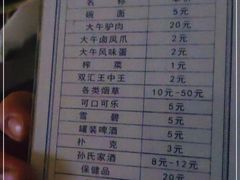 名 称
碗 面 5元
大午驴肉 20元
大午卤凤爪 2元
大午风味蛋 2元
榨 菜 1元
双汇王中王 2元
各类烟草 10元-50元
可口可乐 5元
雪 碧 5元
罐装啤酒 5元
扑 克 3元
孙氏家酒 8元-12元
保健品 20元